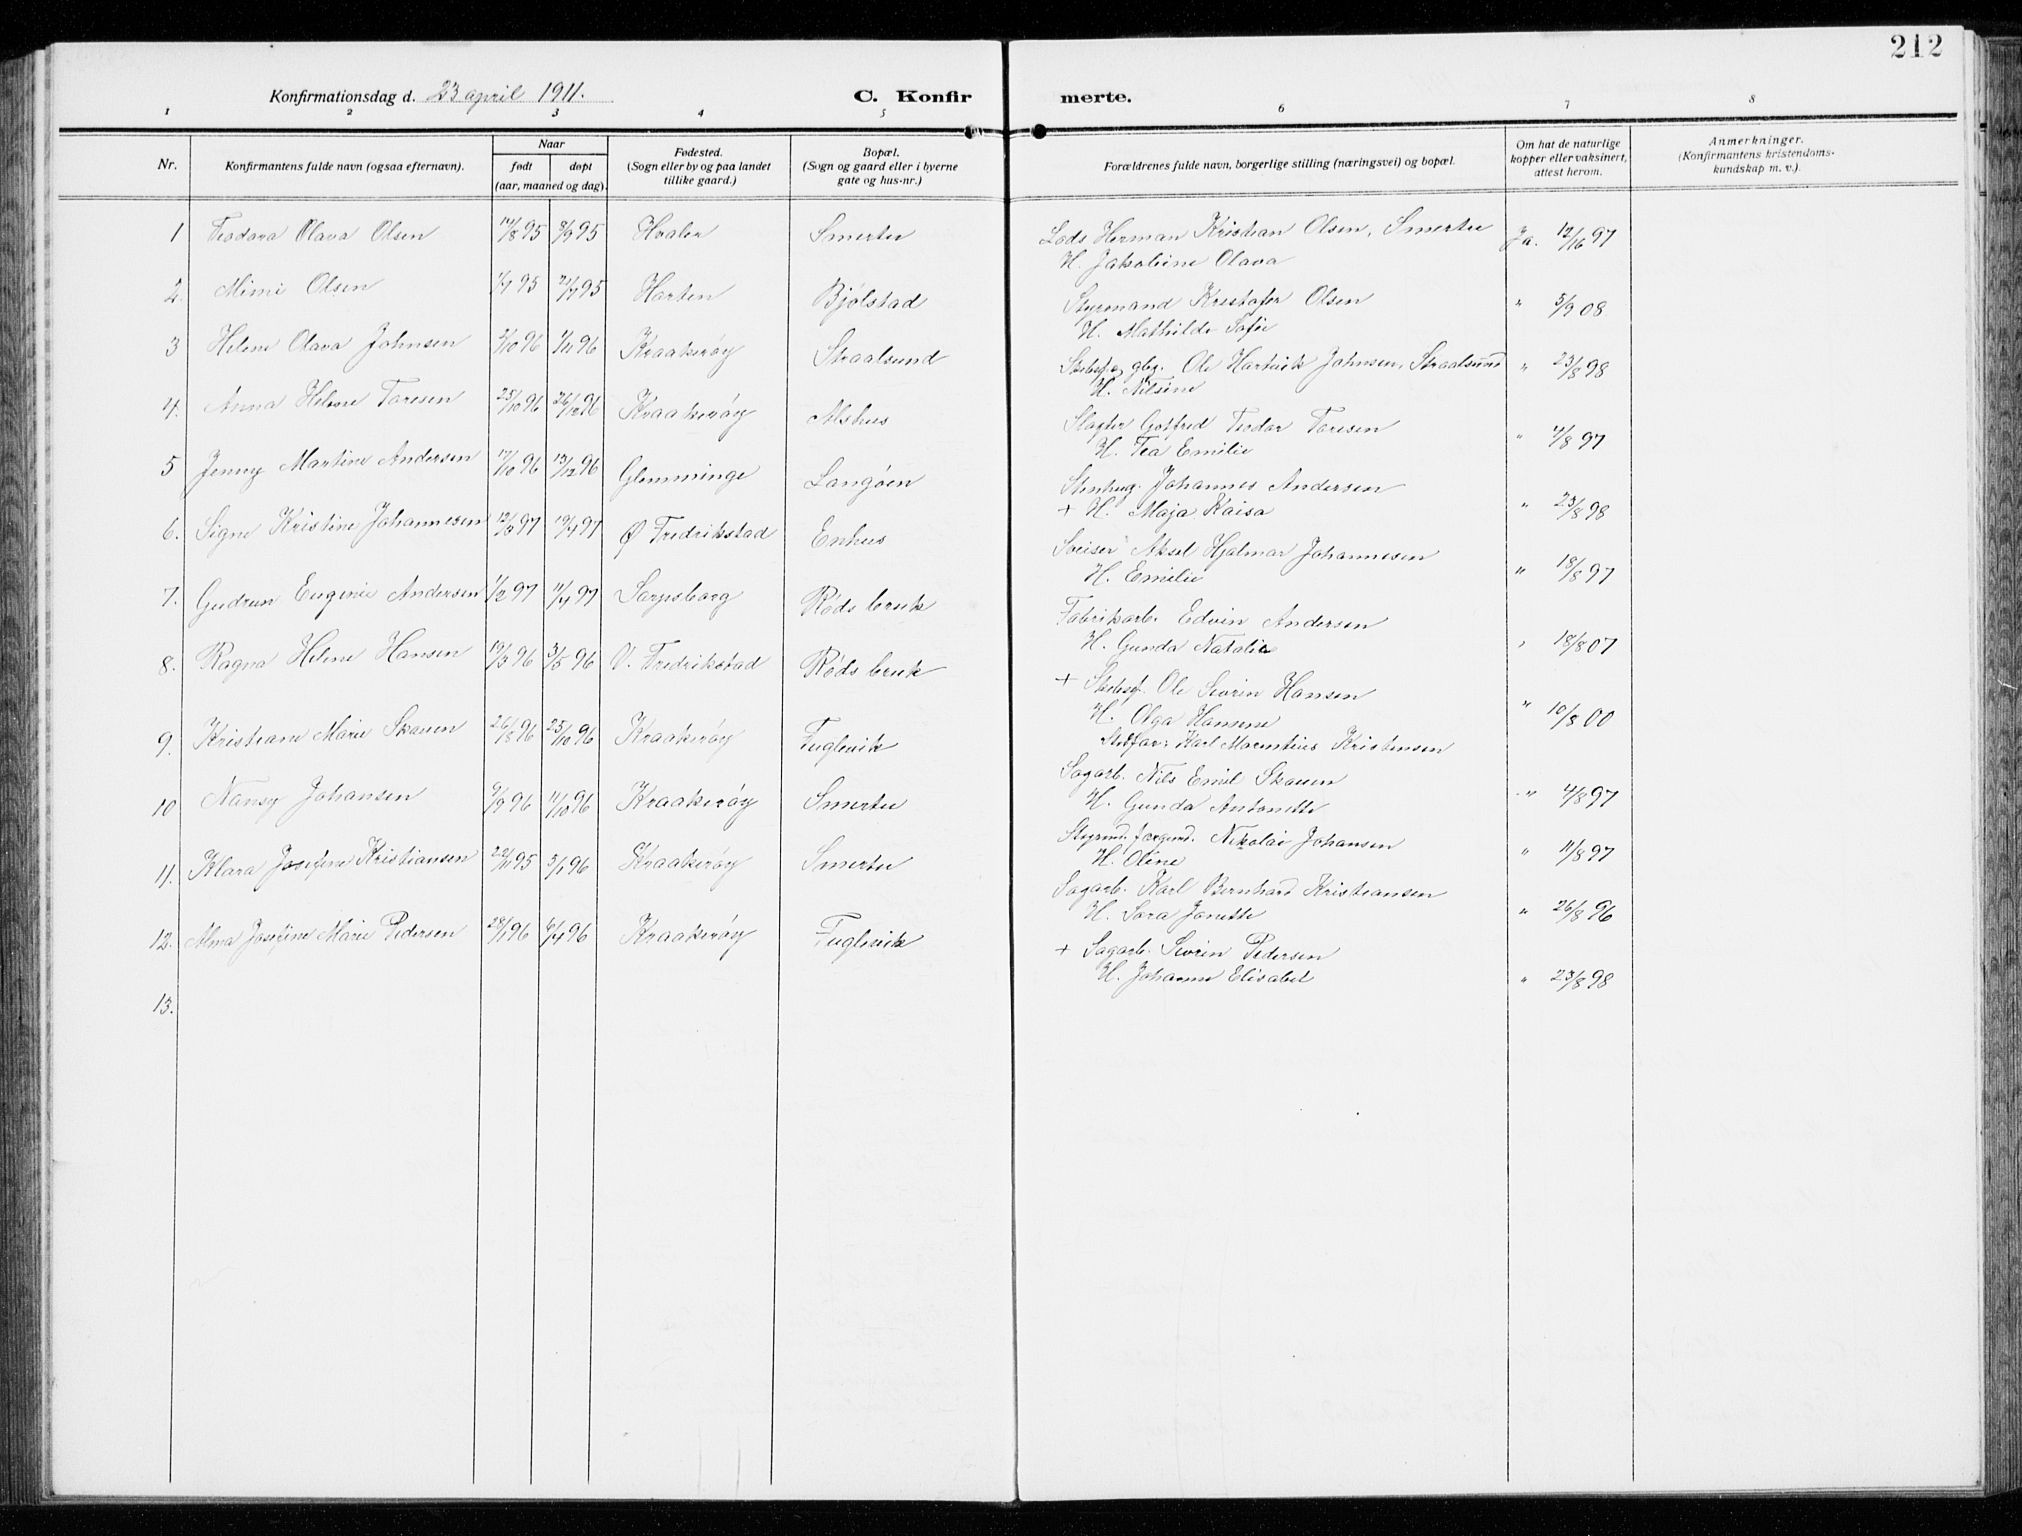 212
Konfirmationsdag d. 23 april 1911. C. Konfirmerte.
1 2 3 4 5 6 7 8
Nr. Konfirmantens fulde navn (ogsaa efternavn). Naar født døpt (aar, maaned og dag). Fødested. (Sogn eller by og paa landet tillike gaard.) Bopæl. (Sogn og gaard eller i byerne gate og hus-nr.) Forældrenes fulde navn, borgerlige stilling (næringsvei) og bopæl. Om hat de naturlige kopper eller vaksinert, attest herom. Anmerkninger. (Konfirmantens kristendomskundskap m. v.).
1 Teodora Olava Olsen 14/8 95 8/9 95 Hvaler Smertu Lods Herman Kristian Olsen, Smertu Ja. 97
H. Jakobine Olava
2. Mimi Olsen 1/7 95 21/7 95 Bjølstad Styrmand Kristofer Olsen " 5/9 08
H. Mathilde Sofie
3 Helene Olava Johnsen 2/10 96 1/11 96 Kraakerøy Straalsund gbr. Ole Hartvik Johnsen, Straalsund " 23/8 98
H. Nilsine
4. Anna Helene Toresen 25/10 96 26/12 96 Kraakerøy Alshus Slagter Gotfred Teodor Toresen " 4/8 97
H. Tea Emilie
5 Jenny Martine Andersen 17/10 96 13/12 96 Glemminge Langøen Stenhug. Johannes Andersen
+ H. Maja Kaisa " 23/8 98
6. Signe Kristine Johannesen 12/3 97 19/4 97 Ø Fredrikstad Enhus Sveiser Aksel Hjalmar Johannesen
H. Emilie " 18/8 97
7. Gudrun Eugenie Andersen 1/2 97 11/4 97 Sarpsborg Røds bruk Fabrikarb. Edvin Andersen
H. Gunda Natalie " 18/8 07
8. Ragna Helene Hansen 19/3 96 3/5 96 V. Fredrikstad Røds bruk + Ole Severin Hansen
H. Olga Hansine " 10/8 00
Stedfar: Karl Kristensen
9. Kristiane Marie Skauen 26/8 96 25/10 96 Kraakerøy Fuglevik Sagarb. Nils Emil Skauen
H. Gunda Antonette " 4/8 97
10 Nansy Johansen 9/9 96 11/10 96 Kraakerøy Smertu Nikolai Johansen
H. Oline " 11/8 97
11. Klara Josefine Kristiansen 22/11 95 5/1 96 Kraakerøy Smertu Sagarb. Karl Bernhard Kristiansen
H. Sara Janette " 26/8 96
12. Alma Josefine Marie Pedersen 28/1 96 6/4 96 Kraakerøy Fuglevik + Sagarb. Severin Pedersen
H. Johanne Elisabet " 23/8 98
13.